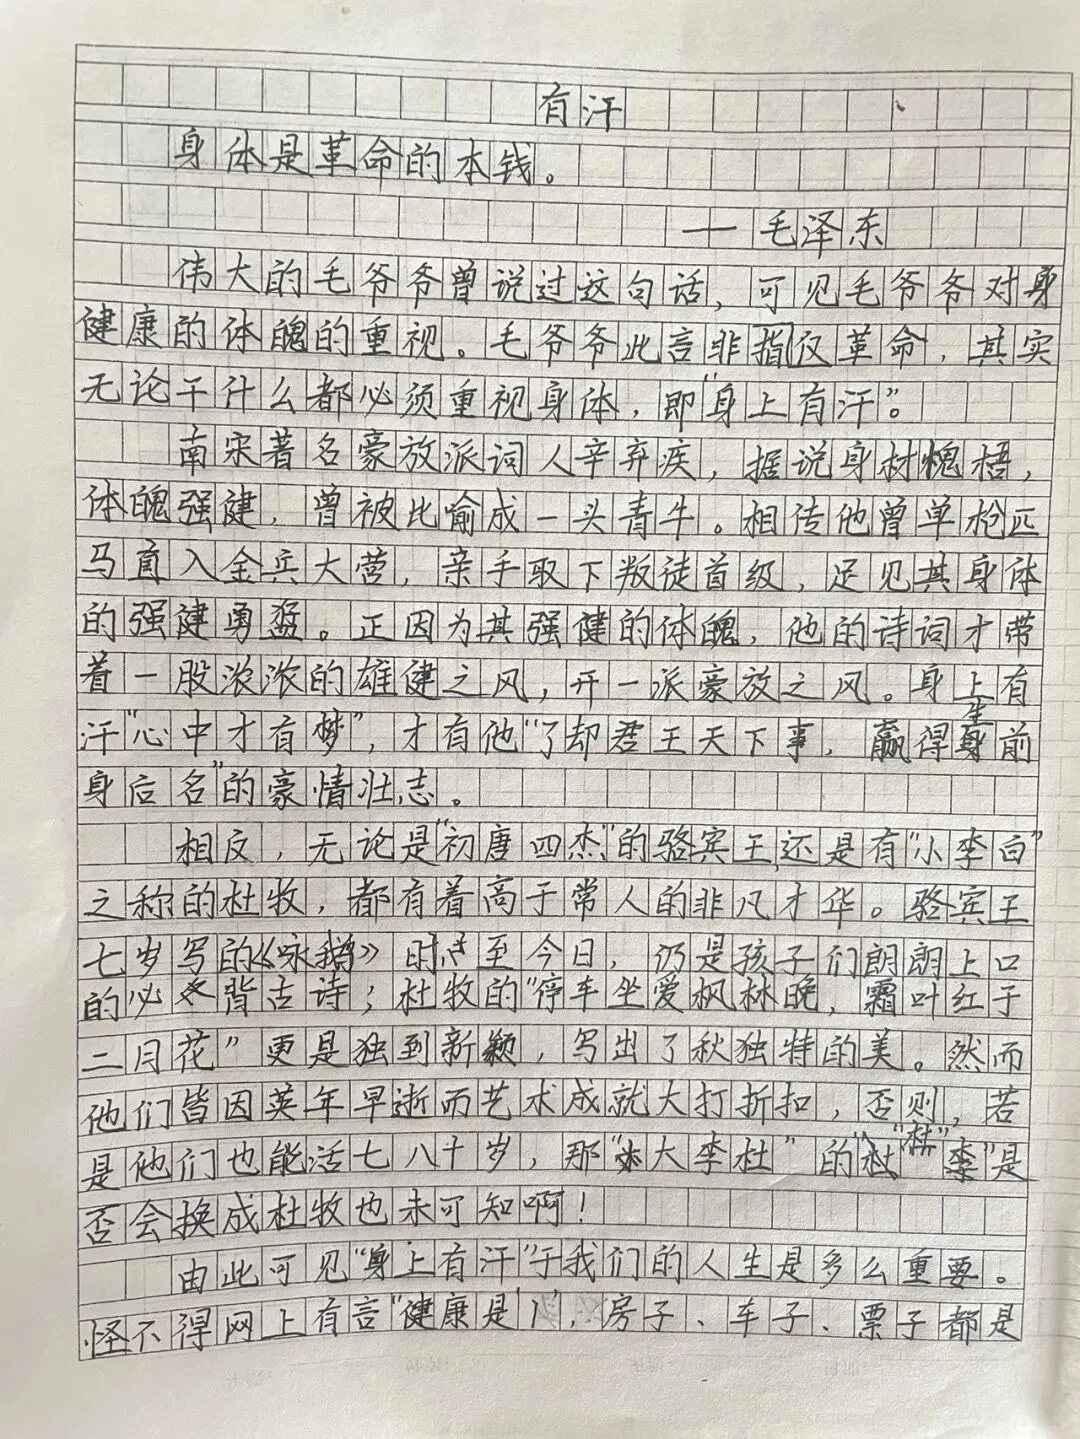 有汗
身体是革命的本钱。
——毛泽东
伟大的毛爷爷曾说过这句话，可见毛爷爷对身
健康的体魄的重视。毛爷爷此言非指仅革命，其实
无论干什么都必须重视身体，即“身上有汗”。
南宋著名豪放派词人辛弃疾，据说身材槐梧，
体魄强健，曾被比喻成一头青牛。相传他曾单枪匹
马直入金兵大营，亲手取下叛徒首级，足见其身体
的强健勇猛。正因为其强健的体魄，他的诗词才带
着一股浓浓的雄健之风，开一派豪放之风。身上有
汗“心中才有梦”，才有他“了却君王天下事，赢得生前
身后名”的豪情壮志。
相反，无论是“初唐四杰”的骆宾王，还是有“小李白”
之称的杜牧，都有着高于常人的非凡才华。骆宾王
七岁写的《咏鹅》时至今日，仍是孩子们朗朗上口
的必背古诗；杜牧的“停车坐爱枫林晚，霜叶红于
二月花”更是独到新颖，写出了秋独特的美。然而
他们皆因英年早逝而艺术成就大打折扣，否则，若
是他们也能活七八十岁，那“大李杜”的“杜”是
否会换成杜牧也未可知啊！
由此可见“身上有汗”于我们的人生是多么重要。
怪不得网上有言“健康是‘1’，房子、车子、票子都是